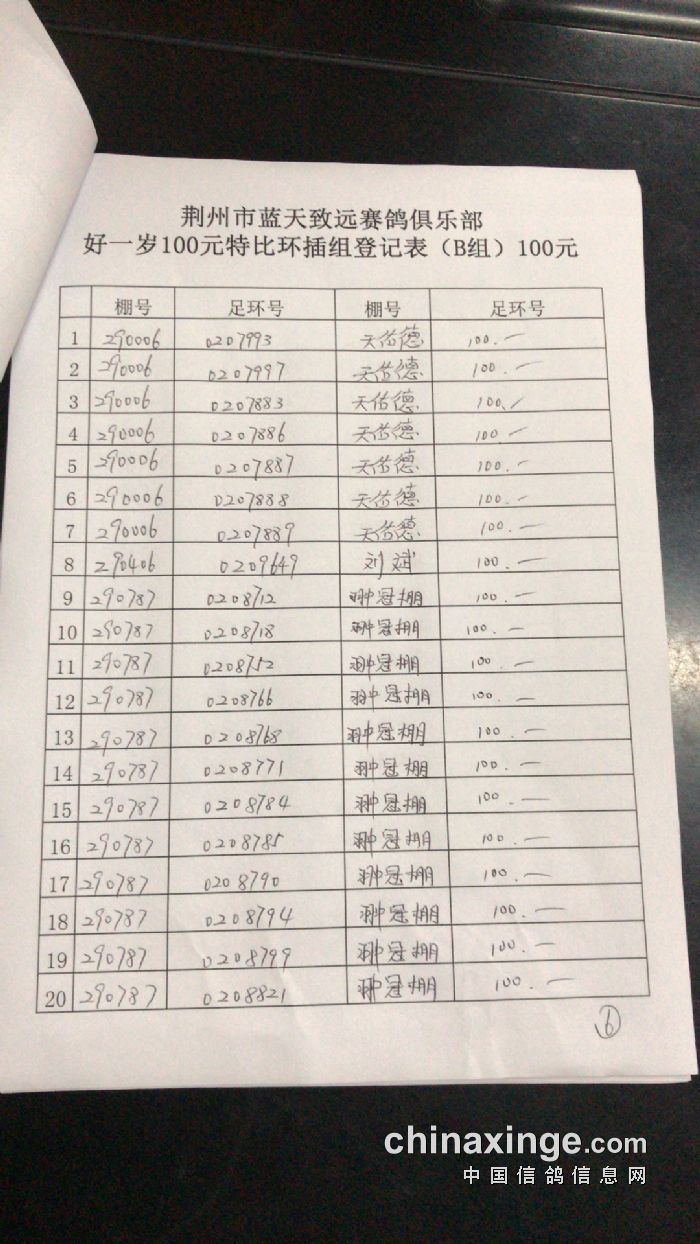 荆州市蓝天致远赛鸽俱乐部
好一岁100元特比环插组登记表（B组）100元
棚号 足环号 棚号 足环号
1 290006 0207993 天佑德 100.—
2 290006 0207997 天佑德 100.—
3 290006 0207883 天佑德 100.—
4 290006 0207886 天佑德 100.—
5 290006 0207887 天佑德 100.—
6 290006 0207888 天佑德 100.—
7 290006 0207889 天佑德 100.—
8 290406 0209649 刘斌 100.—
9 290787 0208712 翀冠棚 100.—
10 290787 0208718 翀冠棚 100.—
11 290787 0208752 翀冠棚 100.—
12 290787 0208766 翀冠棚 100.—
13 290787 0208768 翀冠棚 100.—
14 290787 0208771 翀冠棚 100.—
15 290787 0208784 翀冠棚 100.—
16 290787 0208785 翀冠棚 100.—
17 290787 0208790 翀冠棚 100.—
18 290787 0208794 翀冠棚 100.—
19 290787 0208799 翀冠棚 100.—
20 290787 0208821 翀冠棚 100.—
6
chinaxinge.com
中国信鸽信息网